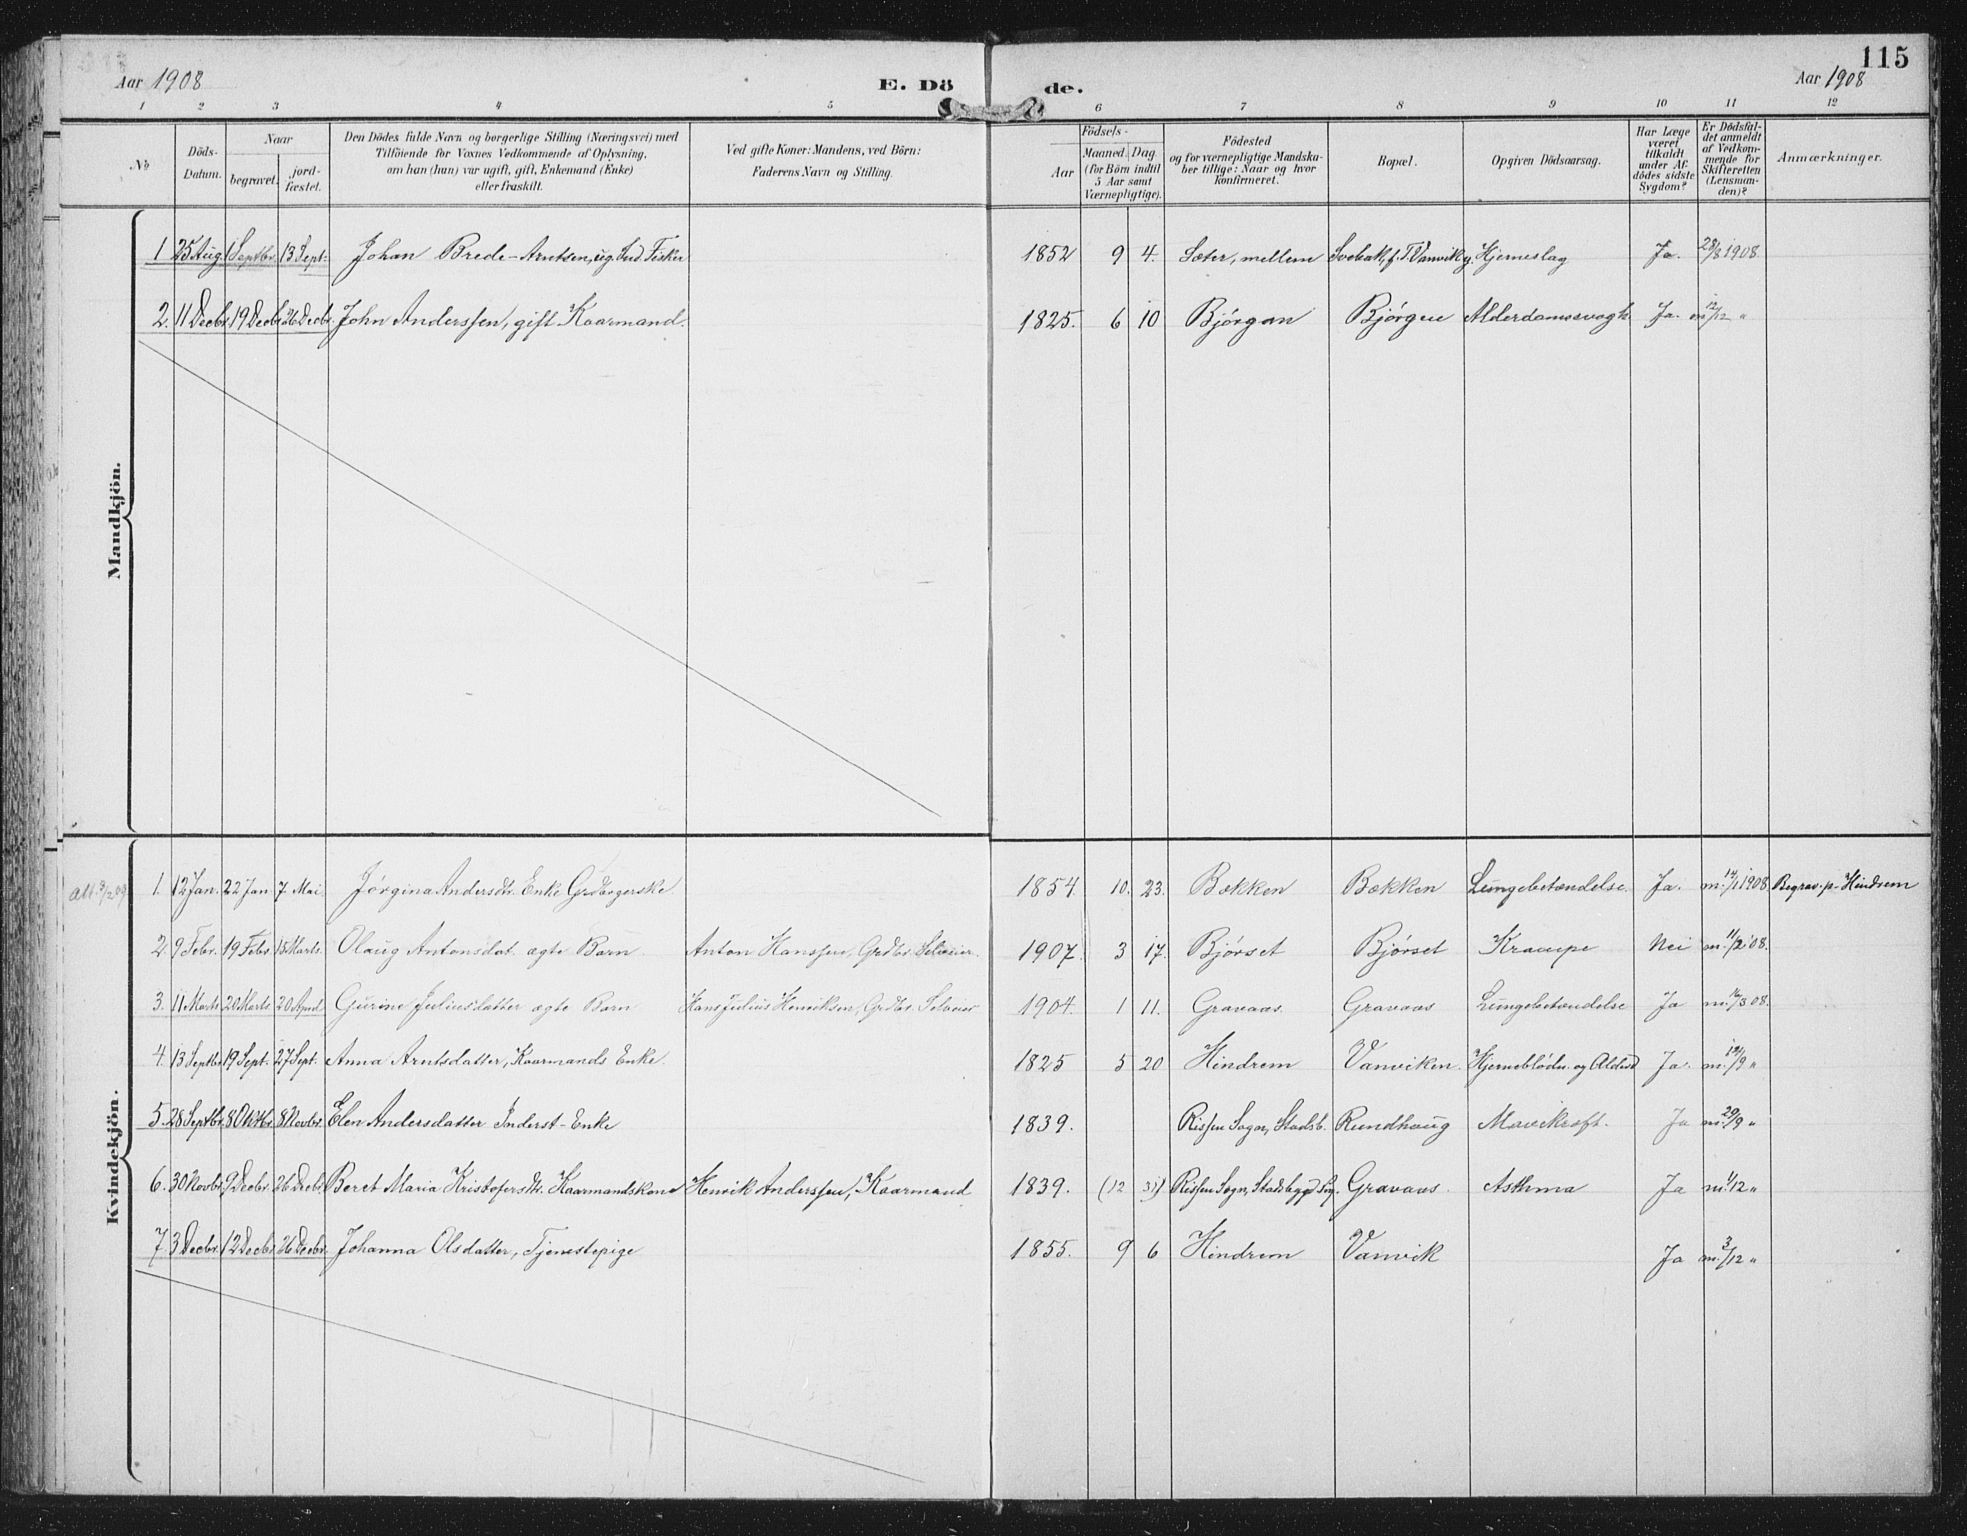 Aar 1908
E. Dö
de.
115
Aar 1908
1 2 3 4 5 6 7 8 9 10 11 12
No
Döds-Datum.
Naar
begravet.
jord-fæstet.
Den Dödes fulde Navn og borgerlige Stilling (Næringsvei) med
Tilföiende for Voxnes Vedkommende af Oplysning,
om han (hun) var ugift, gift, Enkemand (Enke)
eller fraskilt.
Ved gifte Koner: Mandens, ved Börn:
Faderens Navn og Stilling.
Födsels-
Aar
Maaned. Dag
(for Börn indtil
5 Aar samt
Værnepligtige).
Födested
og for værnepligtige Mandska-
ber tillige: Naar og hvor
Konfirmeret.
Bopæl.
Opgiven Dödsaarsag.
Har Læge
været
tilkaldt
under Af-
dödes sidste
Sygdom?
Er Dödsfal-
det anmeldt
af Vedkom-
mende for
Skifteretten
(Lensman-
den)?
Anmærkninger.
Mandkjön.
1 25 Aug 1 Septbr. 13 Sept. Johan Brede Arntsen, ug. Fisker 1852 9 4. Sæter, mellem f. T. Vanvik Hjerneslag Ja. 28/8 1908.
2. 11 Decbr. 19 Decbr. 26 Decbr. John Anderssen, gift Kaarmand. 1825. 6 10 Bjørgan Bjørgen Alderdomssvagh. Ja. m. 12/12 "
Kvindekjön.
1. 12 Jan. 22 Jan. 7 Mai Jørgina Andersdtr. Enke Grdbrgerske 1854 10. 23. Bækken Bækken Lungebetændelse. Ja. m. 1908. Begrav. p. Hindrem
2. 9 Febr. 19 Febr. 15 Marts. Olaug Antonsdat. ægte Barn. Anton Hanssen, Grdbr. Selveier. 1907. 3 17. Bjørset Bjørset Krampe Nei m. 11/2 08.
3. 11 Marts 20 Marts. 20 April Gurine Juliusdatter ægte Barn Hans Julius Henriksen, Grdbr. Selveier 1904. 1 11. Gravaas. Gravaas Lungebetændelse Ja m. /3 08.
4. 13 Septbr. 19 Sept. 27 Sept. Anna Arntsdatter, Kaarmands Enke. 1825 5 20 Hindrem Vanviken. Hjerneblødn. og Alderd Ja. m. /9 "
5. 28 Septbr. 8 Oktbr. 8 Novbr. Elen Andersdatter Inderst-Enke 1839. Rissen Sogn, Stadsb. Rundhaug Mavekræft. Ja m. 29/9 "
6. 30 Novbr. 9 Decbr. 26 Decbr. Beret Maria Kristofersdtr. Kaarmandskone Henrik Anderssen, Kaarmand 1839. (12 31) Rissen Sogn, Stadsbygd Gravaas. Asthma Ja m. 1/12 "
7. 3 Decbr. 12 Decbr. 26 Decbr. Johanna Olsdatter, Tjenestepige 1855. 9 6 Hindrem Vanvik Ja m. 3/12 "